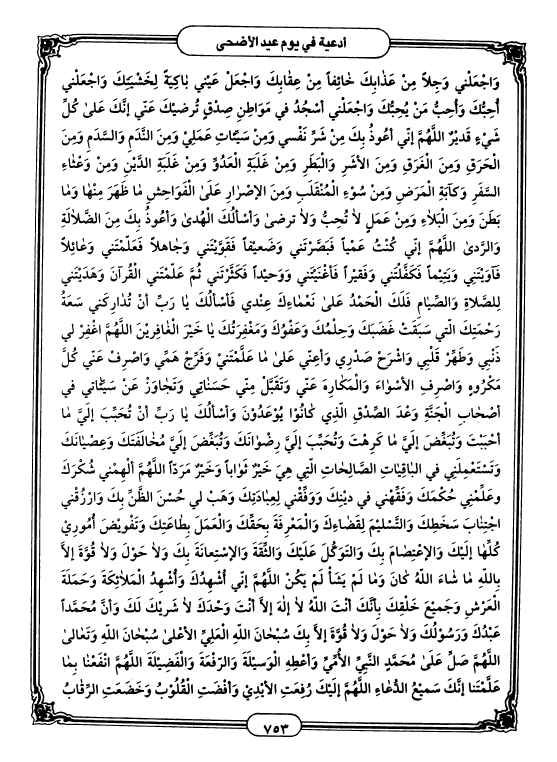 أدعية في يوم عيد الأضحى
وَاجْعَلْني وَجِلاً مِنْ عَذٰابِكَ خٰائِفاً مِنْ عِقٰابِكَ وَاجْعَلْ عَيْني بٰاكِيَةً لِخَشْيَتِكَ وَاجْعَلْني
أُحِبُّكَ وَأُحِبُّ مَنْ يُحِبُّكَ وَاجْعَلْني أَسْجُدُ في مَوٰاطِنِ صِدْقٍ تُرضيْكَ عَنّي إنَّكَ عَلىٰ كُلِّ
شَيْءٍ قَديْرٌ اللَّهُمَّ إنّي أَعُوذُ بِكَ مِنْ شَرِّ نَفْسي وَمِنْ سَيِّئٰاتِ عَمَلي وَمِنَ النَّدَمِ وَالسَّدَمِ وَمِنَ
الْحَرَقِ وَمِنَ الْغَرَقِ وَمِنَ الأَشَرِ وَالْبَطَرِ وَمِنْ غَلَبَةِ الْعَدُوِّ وَمِنْ غَلَبَةِ الدَّيْنِ وَمِنْ وَعْثٰاءِ
السَّفَرِ وَكَآبَةِ الْمَرَضِ وَمِنْ سُوْءِ الْمُنْقَلَبِ وَمِنَ الإصْرٰارِ عَلىٰ الْفَوٰاحِشِ مٰا ظَهَرَ مِنْهٰا وَمٰا
بَطَنَ وَمِنَ الْبَلاٰءِ وَمِنْ عَمَلٍ لاٰ تُحِبُّ وَلاٰ تَرضىٰ وَأَسْأَلُكَ الْهُدىٰ وَأَعُوذُ بِكَ مِنَ الضَّلاٰلَةِ
وَالرَّدىٰ اللَّهُمَّ إنّي كُنْتُ عَمْياً فَبَصَّرْتَني وَضَعيْفاً فَقَوَّيْتَني وَجٰاهِلاً فَعَلَّمْتَني وَعٰائِلاً
فَآوَيْتَني وَيَتيْماً فَكَفَّلْتَني وَفَقيْراً فَأَغْنَيْتَني وَوَحيْداً فَكَثَّرْتَني ثُمَّ عَلَّمْتَني الْقُرآنَ وَهَدَيْتَني
لِلصَّلاٰةِ وَالصِّيٰامِ فَلَكَ الْحَمْدُ عَلىٰ نَعْمٰاءِكَ عِنْدي فَأَسْأَلُكَ يٰا رَبِّ أَنْ تُدٰارِكَني سَعَةُ
رَحْمَتِكَ الَّتي سَبَقَتْ غَضَبَكَ وَحِلْمُكَ وَعَفْوُكَ وَمَغْفِرَتُكَ يٰا خَيْرَ الْغٰافِريْنَ اللَّهُمَّ اغْفِرْ لي
ذَنْبي وَطَهِّرْ قَلْبي وَاشْرَحْ صَدْري وَأَعِنّي عَلىٰ مٰا عَلَّمْتَنيْ وَفَرِّجْ هَمّي وَاصْرِفْ عَنّي كُلَّ
مَكْرُوهٍ وَاصْرِفِ الأَسْوٰاءَ وَالْمَكٰارِهَ عَنّي وَتَقَبَّلْ مِنّي حَسَنٰاتي وَتَجٰاوَزْ عَنْ سَيِّئٰاتي في
أَصْحٰابِ الْجَنَّةِ وَعْدَ الصِّدْقِ الَّذي كٰانُوا يُوْعَدُوْنَ وَأَسْأَلُكَ يٰا رَبِّ أَنْ تُحَبِّبَ إلَيَّ مٰا
أَحْبَبْتَ وَتُبَغِّضَ إلَيَّ مٰا كَرِهْتَ وَتُحَبِّبَ إلَيَّ رِضْوٰانَكَ وَتُبَغِّضَ إلَيَّ مُخٰالَفَتَكَ وَعِصْيٰانَكَ
وَتَسْتَعْمِلَني في الْبٰاقِيٰاتِ الصّٰالِحٰاتِ الَّتي هِيَ خَيْرٌ ثَوٰاباً وَخَيْرٌ مَرَدّاً اللَّهُمَّ أَلْهِمْني شُكْرَكَ
وعَلِّمْني حُكْمَكَ وَفَقِّهْني في ديْنِكَ وَوَفِّقْني لِعِبٰادَتِكَ وَهَبْ لي حُسْنَ الظَّنِّ بِكَ وَارْزُقْني
اجْتِنٰابَ سَخَطِكَ وَالتَّسْليْمَ لِقَضٰاءِكَ وَالْمَعْرِفَةَ بِحَقِّكَ وَالْعَمَلَ بِطٰاعَتِكَ وَتَفْويْضَ أُمُوريْ
كُلِّهٰا إلَيْكَ وَالإعْتِصٰامَ بِكَ وَالتَّوَكُّلَ عَلَيْكَ وَالثِّقَةَ وَالإسْتِعٰانَةَ بِكَ وَلاٰ حَوْلَ وَلاٰ قُوَّةَ إلاّٰ
بِاللهِ مٰا شٰاءَ اللهُ كٰانَ وَمٰا لَمْ يَشَأْ لَمْ يَكُنْ اللَّهُمَّ إنّي أُشْهِدُكَ وَأُشْهِدُ الْمَلاٰئِكَةَ وَحَمَلَةَ
الْعَرْشِ وَجَميْعَ خَلْقِكَ بِأَنَّكَ أَنْتَ اللهُ لاٰ إلٰهَ إلاّٰ أَنْتَ وَحْدَكَ لاٰ شَريْكَ لَكَ وَأَنَّ مُحَمَّداً
عَبْدُكَ وَرَسُوْلُكَ وَلاٰ حَوْلَ وَلاٰ قُوَّةَ إلاّٰ بِكَ سُبْحٰانَ اللهِ الْعَلِيِّ الأَعْلىٰ سُبْحٰانَ اللهِ وَتَعٰالىٰ
اللَّهُمَّ صَلِّ عَلىٰ مُحَمَّدٍ النَّبِيِّ الأُمِّيِّ وَأَعْطِهِ الْوَسيْلَةَ وَالرِّفْعَةَ وَالْفَضيْلَةَ اللَّهُمَّ انْفَعْنٰا بِمٰا
عَلَّمْتَنٰا إنَّكَ سَميْعُ الدُّعٰاءِ اللَّهُمَّ إلَيْكَ رُفِعَتِ الأَيْديْ وَأَفْضَتِ الْقُلُوْبُ وَخَضَعَتِ الرِّقٰابُ
٧٥٣